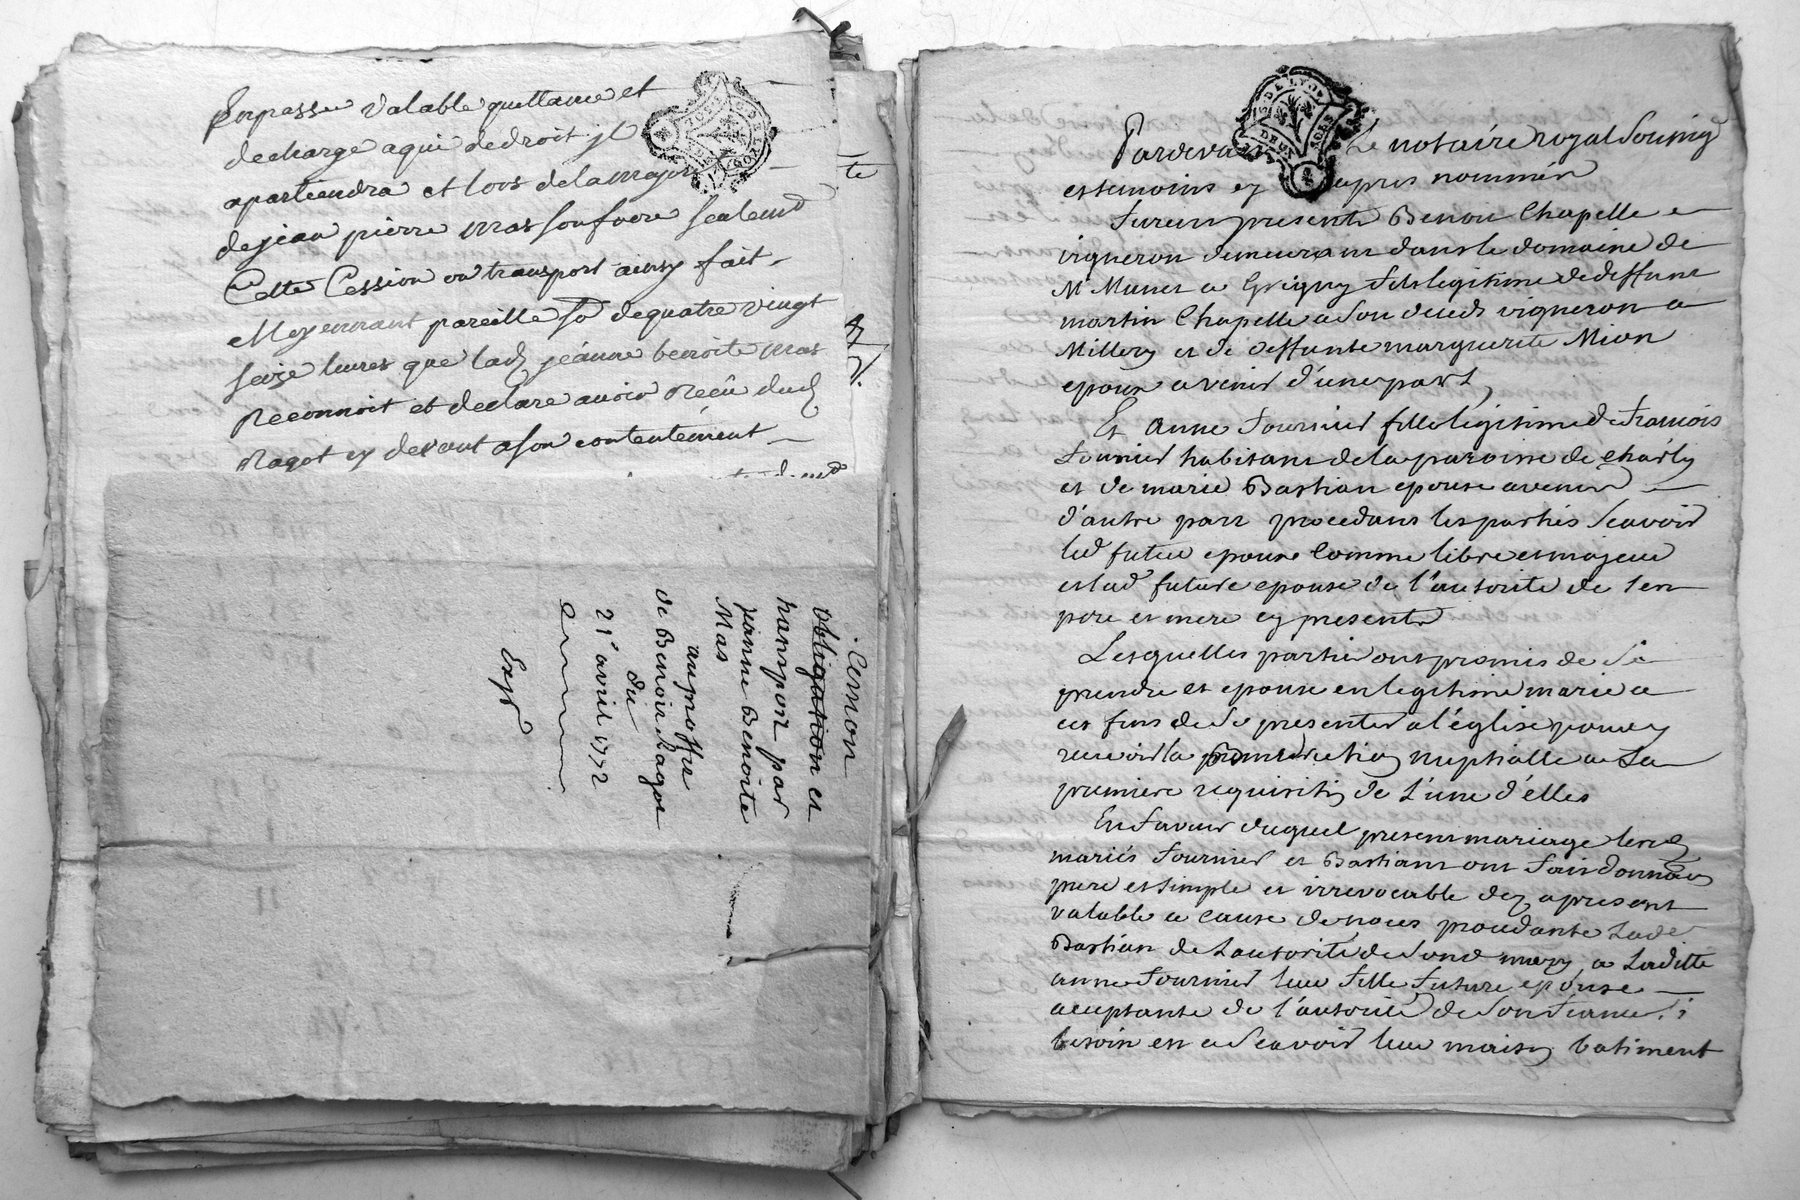 En passer valable quittance et
decharge a qui de droit jl
apartiendra et lors de la major
de jean pierre mas son frere seulemd
Cette Cession ou transport ainsy fait
Moyennant pareille so de quatre vingt
seize livres que lad jeanne benoite mas
Reconnoit et declare avoir Recû dud
Ragot cy devant a son contentement
te
Cession
obligation et
transport par
jeanne Benoite
Mas
au proffit
de Benoit Ragot
du
21e avril 1772
Expd
G DE LYON
DEUX SOLS
Pardevant Le notaire royal Soussigé
et temoins cy apres nommés
furent presents Benoit Chapelle
vigneron demeurant dans le domaine de
Mr Munet a Grigny fils legitime de deffunt
martin Chapelle a son deceds vigneron a
Millery et de deffunte marguerite Mion
epoux avenir d'une part,
Et Anne Fournier fille legitime de francois
fournier habitant de la paroisse de charly
et de marie Bastian epouse avenir
d'autre part procedans les parties Scavoir
led futur epoux Comme libre et majeur
et lad future epouse de l'autorite de Ses
pere et mere cy presents
Lesquelles parties ont promis de Se
prendre et epouser en legitime mariage
ces fins de Se presenter a l'église pour y
recevoir la Benediction nuptialle a La
premiere requisition de L'une d'élles
En faveur duquel present mariage lesd
mariés fournier et Bastian ont fait donnaon
pure et simple et irrevocable dez apresent
valable a cause de noces procedante Lade
Bastian de Lautorité de Sond mary, a Laditte
anne fournier leur fille future epouse
acceptante de l'autorité de Son futur, Si
besoin est a Scavoir leur maison batiment